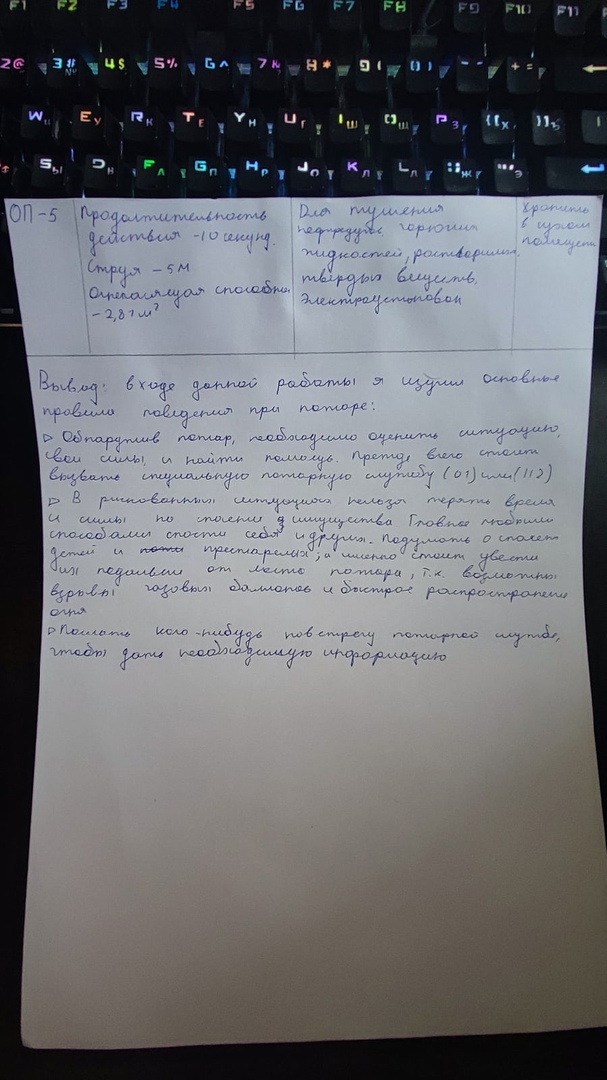 F1 F2 F3 F4 F5 F6 F7 F8 F9 F10 F11
2@ 3# 4$ 5% 6^ 7& 8* 9( 0) -- +=
W Ц E У R К T Е Y Н U Г I Ш O Щ P З {[ Х }] Ъ
S Ы D В F А G П H Р J О K Л L Д :; Ж "' Э
ОП-5
Продолжительность
действия -10 секунд.
Струя - 5м
Огнепаляущая способность
- 2,81 м²
Для тушения
нефтепродук горючих
жидкостей, растворимых.
твердых веществ,
Электроустановок
Хранить
в сухом
помещени
Вывод: в ходе данной работы я изучил основные
правила поведения при пожаре:
▷ Обнаружив пожар, необходимо оценить ситуацию,
свои силы, и найти помощь. Прежде всего стоит
вызвать специальную пожарную службу (01) или (112)
▷ В рискованных ситуациях нельзя терять время
и силы на спасение имущества. Главное любыми
способами спасти себя и других. Подумать о спасен
детей и престарелых; а именно стоит увести
их подальше от места пожара, т.к. возможны
взрывы газовых баллонов и быстрое распространение
огня
▷ Послать кого-нибудь навстречу пожарной службе,
чтобы дать необходимую информацию